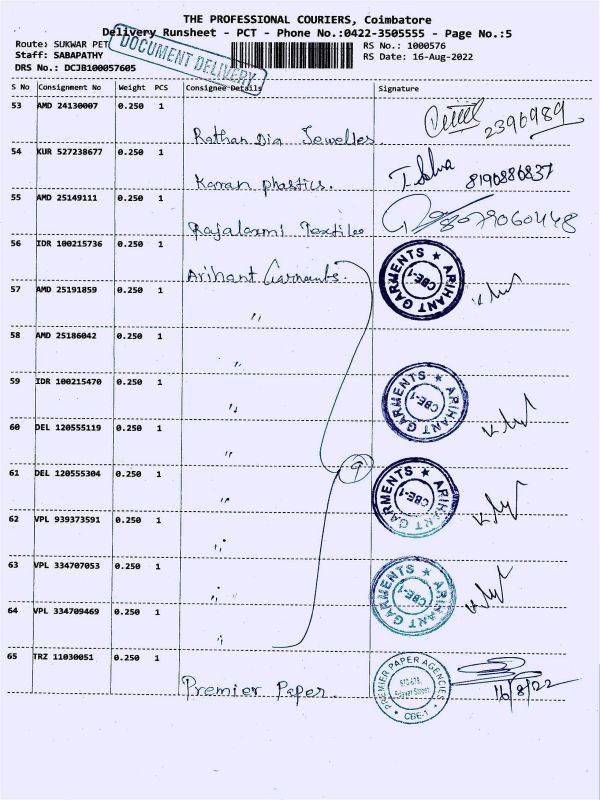 THE PROFESSIONAL COURIERS, Coimbatore
Delivery Runsheet - PCT - Phone No.:0422-3505555 - Page No.:5
Route: SUKWAR PET
RS No.: 1000576
Staff: SABAPATHY
RS Date: 16-Aug-2022
DRS No.: DCJB100057605
DOCUMENT DELIVERY
S No Consignment No Weight PCS Consignee Details Signature
53 AMD 24130007 0.250 1
Rathan Dia Jewelles. 2396989
54 KUR 527238677 0.250 1
Karran phastics. 8190886837
55 AMD 25149111 0.250 1
Rajalaxmi Textiles
56 IDR 100215736 0.250 1
Arihant Garments.
ARIHANT GARMENTS ★ CBE-1
57 AMD 25191859 0.250 1
"
58 AMD 25186042 0.250 1
"
59 IDR 100215470 0.250 1
"
ARIHANT GARMENTS ★ CBE-1
60 DEL 120555119 0.250 1
"
9
61 DEL 120555304 0.250 1
"
ARIHANT GARMENTS ★ CBE-1
62 VPL 939373591 0.250 1
"
63 VPL 334707053 0.250 1
"
ARIHANT GARMENTS ★ CBE-1
64 VPL 334709469 0.250 1
"
65 TRZ 11030051 0.250 1
Premier Paper.
PREMIER PAPER AGENCIES CBE-1
16/8/22